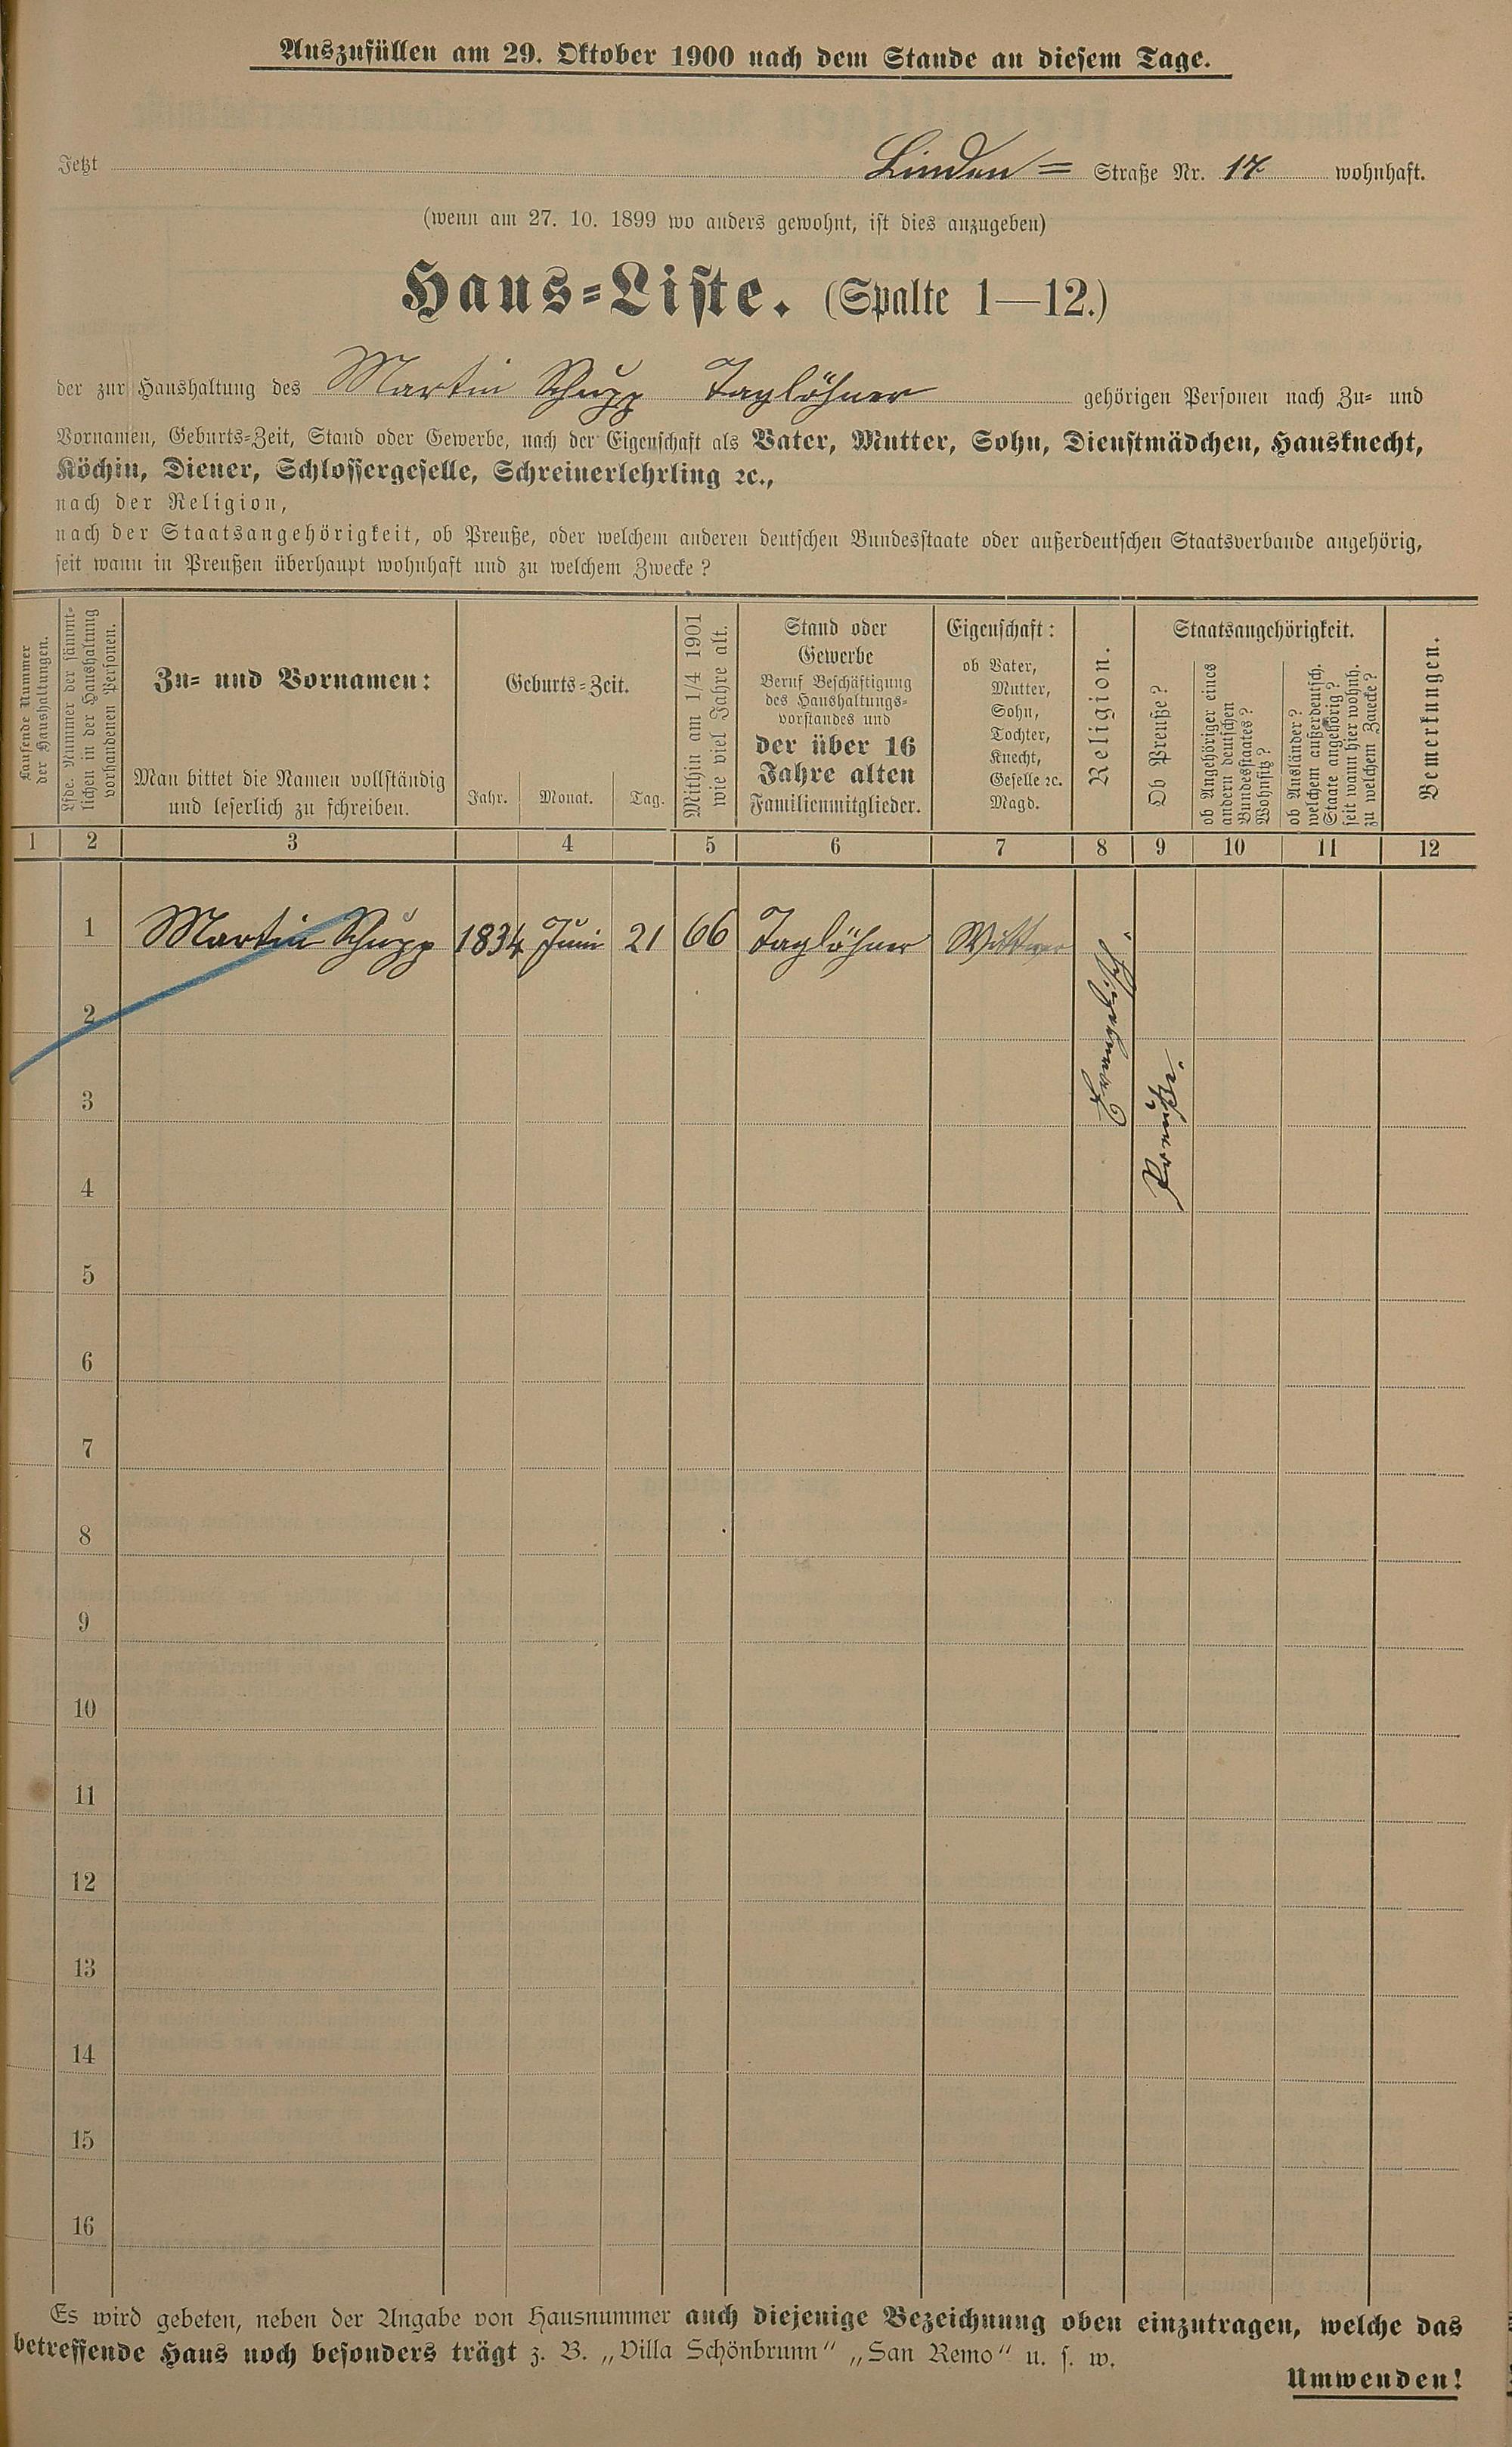 Auszufüllen am 29. Oktober 1900 nach dem Stande an diesem Tage.
Jetzt Linden= Straße Nr. 17 wohnhaft.
(wenn am 27. 10. 1899 wo anders gewohnt, ist dies anzugeben)
Haus=Liste. (Spalte 1—12.)
der zur Haushaltung des Martin Schupp Taglöhner gehörigen Personen nach Zu= und
Vornamen, Geburts=Zeit, Stand oder Gewerbe, nach der Eigenschaft als Vater, Mutter, Sohn, Dienstmädchen, Hausknecht,
Köchin, Diener, Schlossergeselle, Schreinerlehrling ꝛc.,
nach der Religion,
nach der Staatsangehörigkeit, ob Preuße, oder welchem anderen deutschen Bundesstaate oder außerdeutschen Staatsverbande angehörig,
seit wann in Preußen überhaupt wohnhaft und zu welchem Zwecke?
Laufende Nummer
der Haushaltungen.
Lfde. Nummer der sämmt=
lichen in der Haushaltung
vorhandenen Personen.
Zu= und Vornamen:
Man bittet die Namen vollständig
und leserlich zu schreiben.
Geburts=Zeit.
Jahr. Monat. Tag.
Mithin am 1/4 1901
wie viel Jahre alt.
Stand oder
Gewerbe
Beruf Beschäftigung
des Haushaltungs=
vorstandes und
der über 16
Jahre alten
Familienmitglieder.
Eigenschaft:
ob Vater,
Mutter,
Sohn,
Tochter,
Knecht,
Geselle ꝛc.
Magd.
Religion.
Staatsangehörigkeit.
Ob Preuße?
ob Angehöriger eines
andern deutschen
Bundesstaates?
Wohnsitz?
ob Ausländer?
welchem außerdeutsch.
Staate angehörig?
seit wann hier wohnh.
zu welchem Zwecke?
Bemerkungen.
1 2 3 4 5 6 7 8 9 10 11 12
1 Martin Schupp 1834 Juni 21 66 Taglöhner Wittwer
Preuße
2
3
4
5
6
7
8
9
10
11
12
13
14
15
16
Es wird gebeten, neben der Angabe von Hausnummer auch diejenige Bezeichnung oben einzutragen, welche das
betreffende Haus noch besonders trägt z. B. „Villa Schönbrunn“ „San Remo“ u. s. w.
Umwenden!